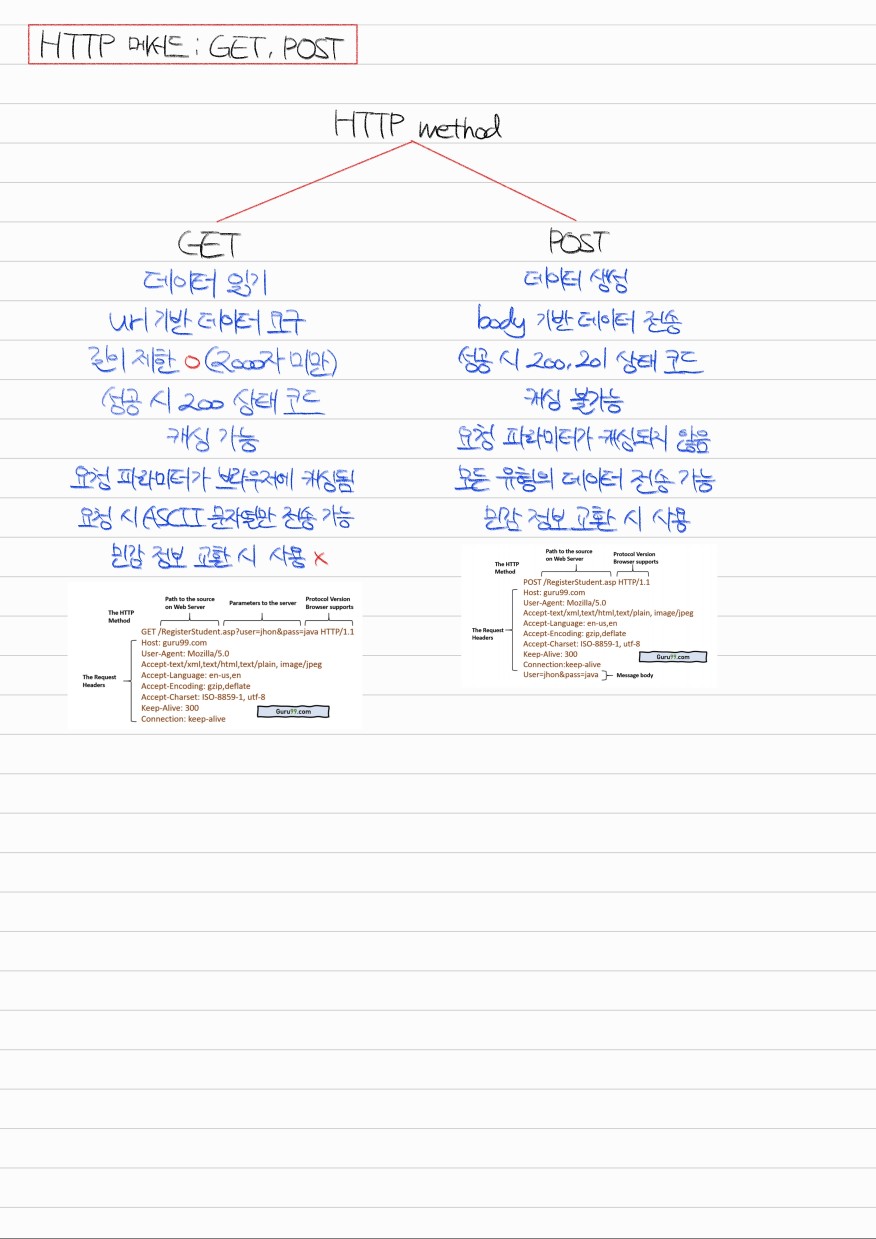 HTTP 메서드 : GET, POST
HTTP method
GET
데이터 읽기
url 기반 데이터 요구
길이 제한 O (2000자 미만)
성공 시 200 상태 코드
캐싱 가능
요청 파라미터가 브라우저에 캐싱됨
요청 시 ASCII 문자열만 전송 가능
민감 정보 교환 시 사용 X
The HTTP Method
Path to the source on Web Server
Parameters to the server
Protocol Version Browser supports
GET /RegisterStudent.asp?user=jhon&pass=java HTTP/1.1
Host: guru99.com
User-Agent: Mozilla/5.0
Accept-text/xml,text/html,text/plain, image/jpeg
Accept-Language: en-us,en
Accept-Encoding: gzip,deflate
Accept-Charset: ISO-8859-1, utf-8
Keep-Alive: 300
Connection: keep-alive
The Request Headers
Guru99.com
POST
데이터 생성
body 기반 데이터 전송
성공 시 200, 201 상태 코드
캐싱 불가능
요청 파라미터가 캐싱되지 않음
모든 유형의 데이터 전송 가능
민감 정보 교환 시 사용
The HTTP Method
Path to the source on Web Server
Protocol Version Browser supports
POST /RegisterStudent.asp HTTP/1.1
Host: guru99.com
User-Agent: Mozilla/5.0
Accept-text/xml,text/html,text/plain, image/jpeg
Accept-Language: en-us,en
Accept-Encoding: gzip,deflate
Accept-Charset: ISO-8859-1, utf-8
Keep-Alive: 300
Connection:keep-alive
User=jhon&pass=java
Message body
The Request Headers
Guru99.com